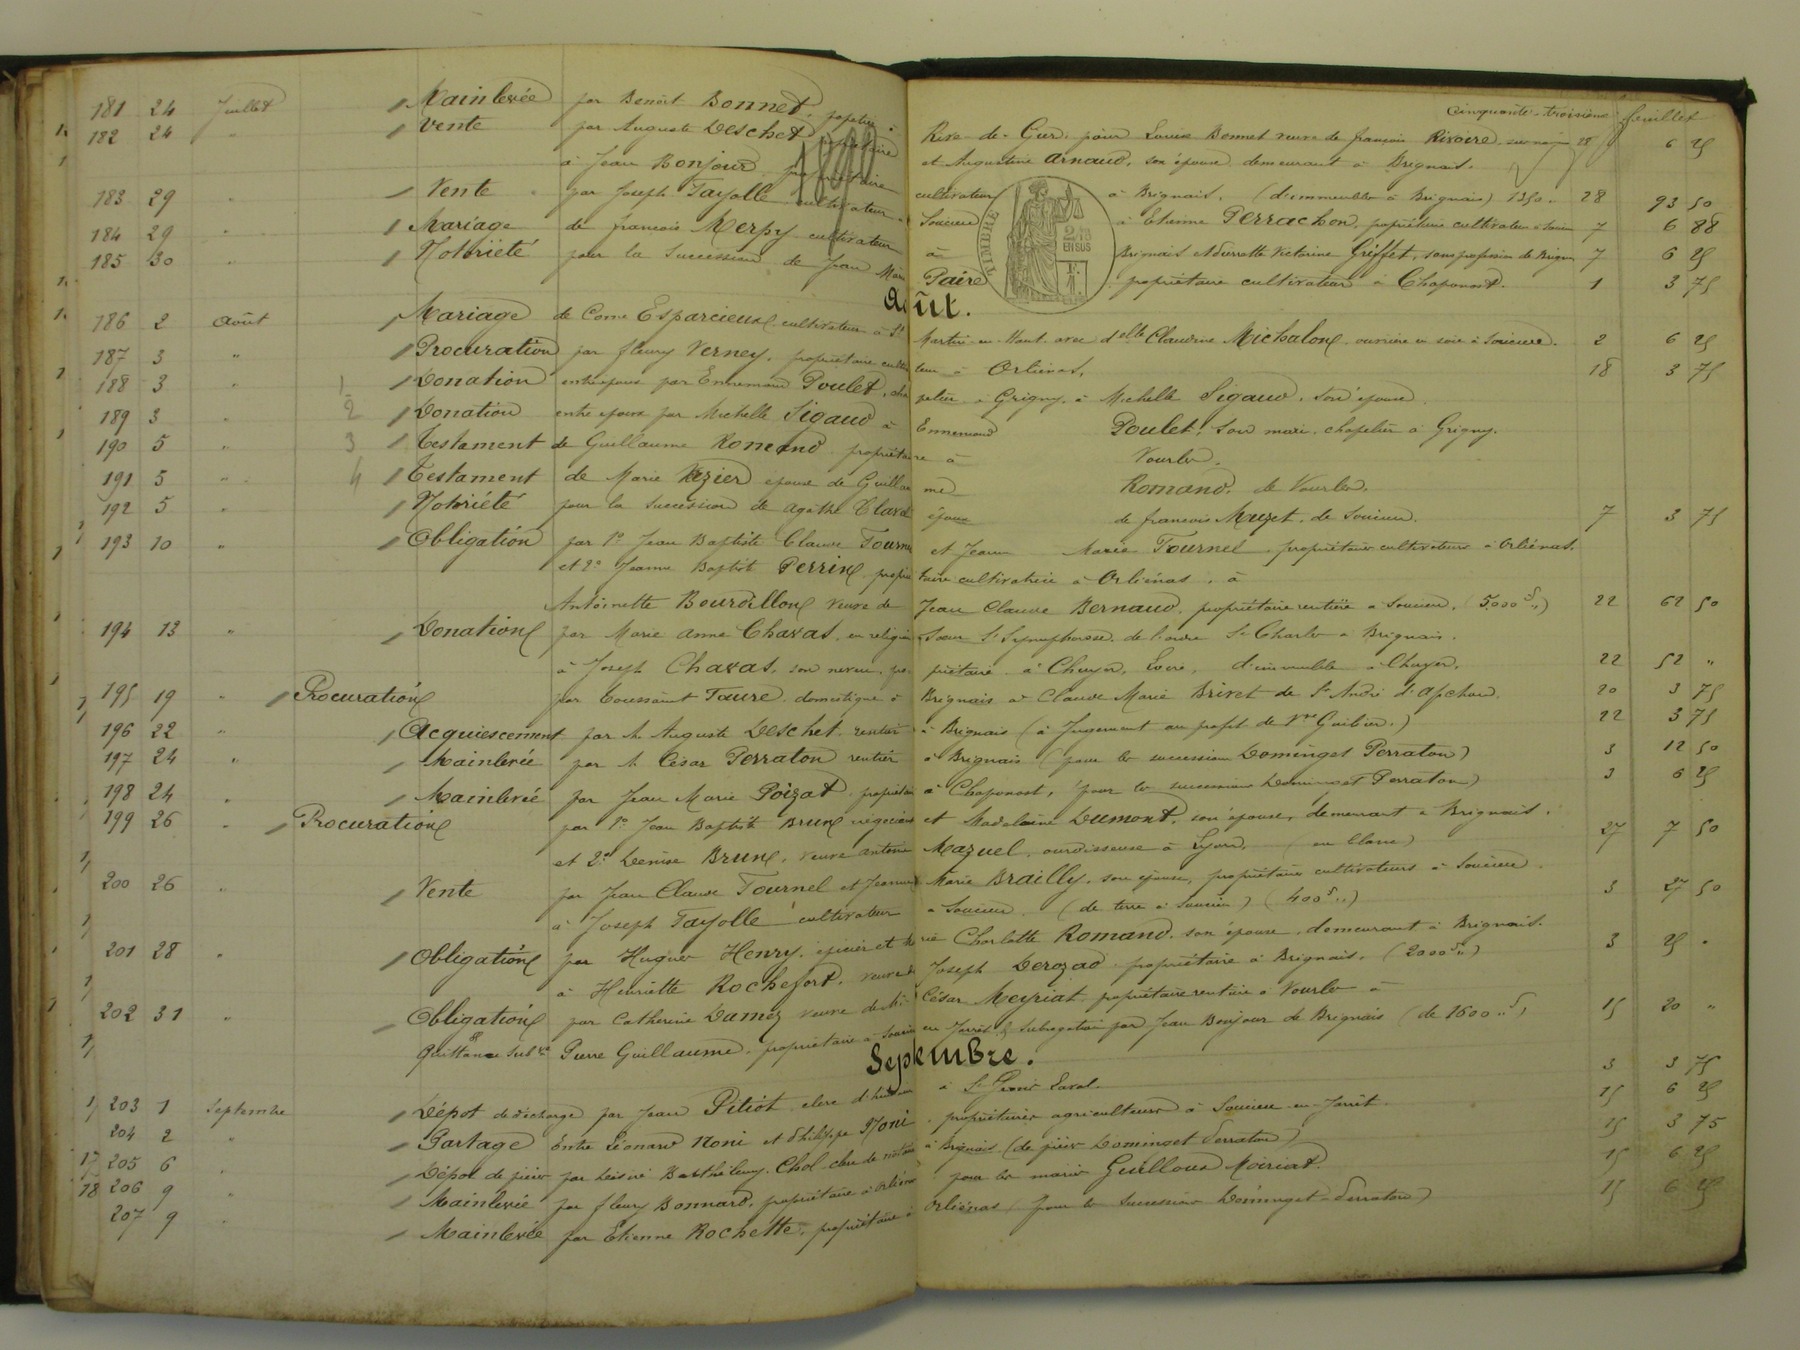 Cinquante-troisième feuillet
181 24 Juillet Mainlevée par Benoit Bonnet, papetier à Rive-de-Gier, pour Louise Bonnet veuve de françois Rivoire 28 6 25
182 24 " Vente par Auguste Deschet propriétaire et Augustine Arnaud, son épouse demeurant à Brignais.
à Jean Bonjour propriétaire cultivateur à Brignais. (d'immeubles à Brignais) 1350 28 93 50
183 29 " Vente par Joseph Fayolle cultivateur à Soucieu à Etienne Perrachon, propriétaire cultivateur à Soucieu 7 6 88
184 29 " Mariage de françois Merpy cultivateur à Brignais et Victorine Griffet, sans profession de Brignais 7 6 25
185 30 " Notoriété pour la Succession de Jean Paire propriétaire cultivateur à Chaponost. 1 3 75
TIMBRE
2/10
EN SUS
Août.
186 2 Août Mariage de Come Esparcieux cultivateur à St Martin-en-Haut avec delle Claudine Michalon ouvrière en soie à Soucieu. 2 6 25
187 3 " Procuration par fleury Verney, propriétaire cultivateur à Orliénas. 18 3 75
188 3 " 1 Donation entre époux par Ennemond Poulet, chapelier à Grigny, à Michelle Sigaud, son épouse.
189 3 " 2 Donation entre époux par Michelle Sigaud à Ennemond Poulet, son mari, chapelier à Grigny.
190 5 " 3 Testament de Guillaume Romand propriétaire à Vourles.
191 5 " 4 Testament de Marie Vezier épouse de Guillaume Romand, de Vourles.
192 5 " Notoriété pour la succession de Agathe Claret épouse de françois Muzet, de Soucieu. 7 3 75
193 10 " Obligation par 1° Jean Baptiste Claude Tournel et Jeanne Marie Tournel, propriétaires cultivateurs à Orliénas,
et 2° Jeanne Baptiste Perrin propriétaire cultivatrice à Orliénas, à
Antoinette Bourdillon veuve de Jean Claude Bernaud, propriétaire rentière à Soucieu, (5.000 f ") 22 62 50
194 13 " Donation par Marie Anne Chavas, en religion Sœur St Symphorose de l'ordre St Charles à Brignais.
à Joseph Chavas, son neveu, propriétaire à Chuyer, Loire, d'immeubles à Chuyer. 22 52 "
195 19 " Procuration par Toussaint Faure, domestique à Brignais à Claude Marie Brivet de St André d'Apchon. 20 3 75
196 22 " Acquiescement par M. Auguste Deschet rentier à Brignais (à Jugement au profit de Vve Guibier.) 22 3 75
197 24 " Mainlevée par M. César Perraton rentier à Brignais (pour la succession Dominget Perraton) 3 12 50
198 24 " Mainlevée par Jean Marie Poizat propriétaire à Chaponost, (pour la succession Dominget Perraton) 3 6 25
199 26 " Procuration par 1° Jean Baptiste Brun négociant et Madelaine Dumont, son épouse, demeurant à Brignais.
et 2° Denise Brun, veuve Antoine Mazuel, ourdisseuse à Lyon, (en blanc) 27 7 50
200 26 " Vente par Jean Claude Tournel et Jeanne Marie Brailly, son épouse, propriétaires cultivateurs à Soucieu.
à Joseph Fayolle cultivateur à Soucieu. (de terre à Soucieu) (400 f ") 3 27 50
201 28 " Obligation par Hugues Henry, épicier et Marie Charlotte Romand, son épouse, demeurant à Brignais.
à Henriette Rochefort, veuve de Joseph Derozad propriétaire à Brignais. (2000 f ") 3 25 "
202 31 " Obligation par Catherine Dumez veuve de César Meyriat propriétaire rentière à Vourles à
Quittance subve Pierre Guillaume, propriétaire à Soucieu en Jarrêt & subrogation par Jean Bonjour de Brignais (de 1600 " f) 15 20 "
Septembre.
3 3 75
203 1 Septembre Dépot de décharge par Jean Pitiot, clerc d'huissier à St Genis Laval. 15 6 25
204 2 " Partage entre Léonard Noni et Philippe Noni, propriétaires agriculteurs à Soucieu-en-Jarrêt. 15 3 75
205 6 " Dépot de pièces par Désiré Barthélemy Chol clerc de notaire à Brignais (de pièces Dominget Perraton) 15 6 25
206 9 " Mainlevée par fleury Bonnard, propriétaire à Orliénas pour les mariés Guilloud Moiriat. 15 6 25
207 9 " Mainlevée par Etienne Rochette, propriétaire à Orliénas (pour la Succession Dominget-Perraton)